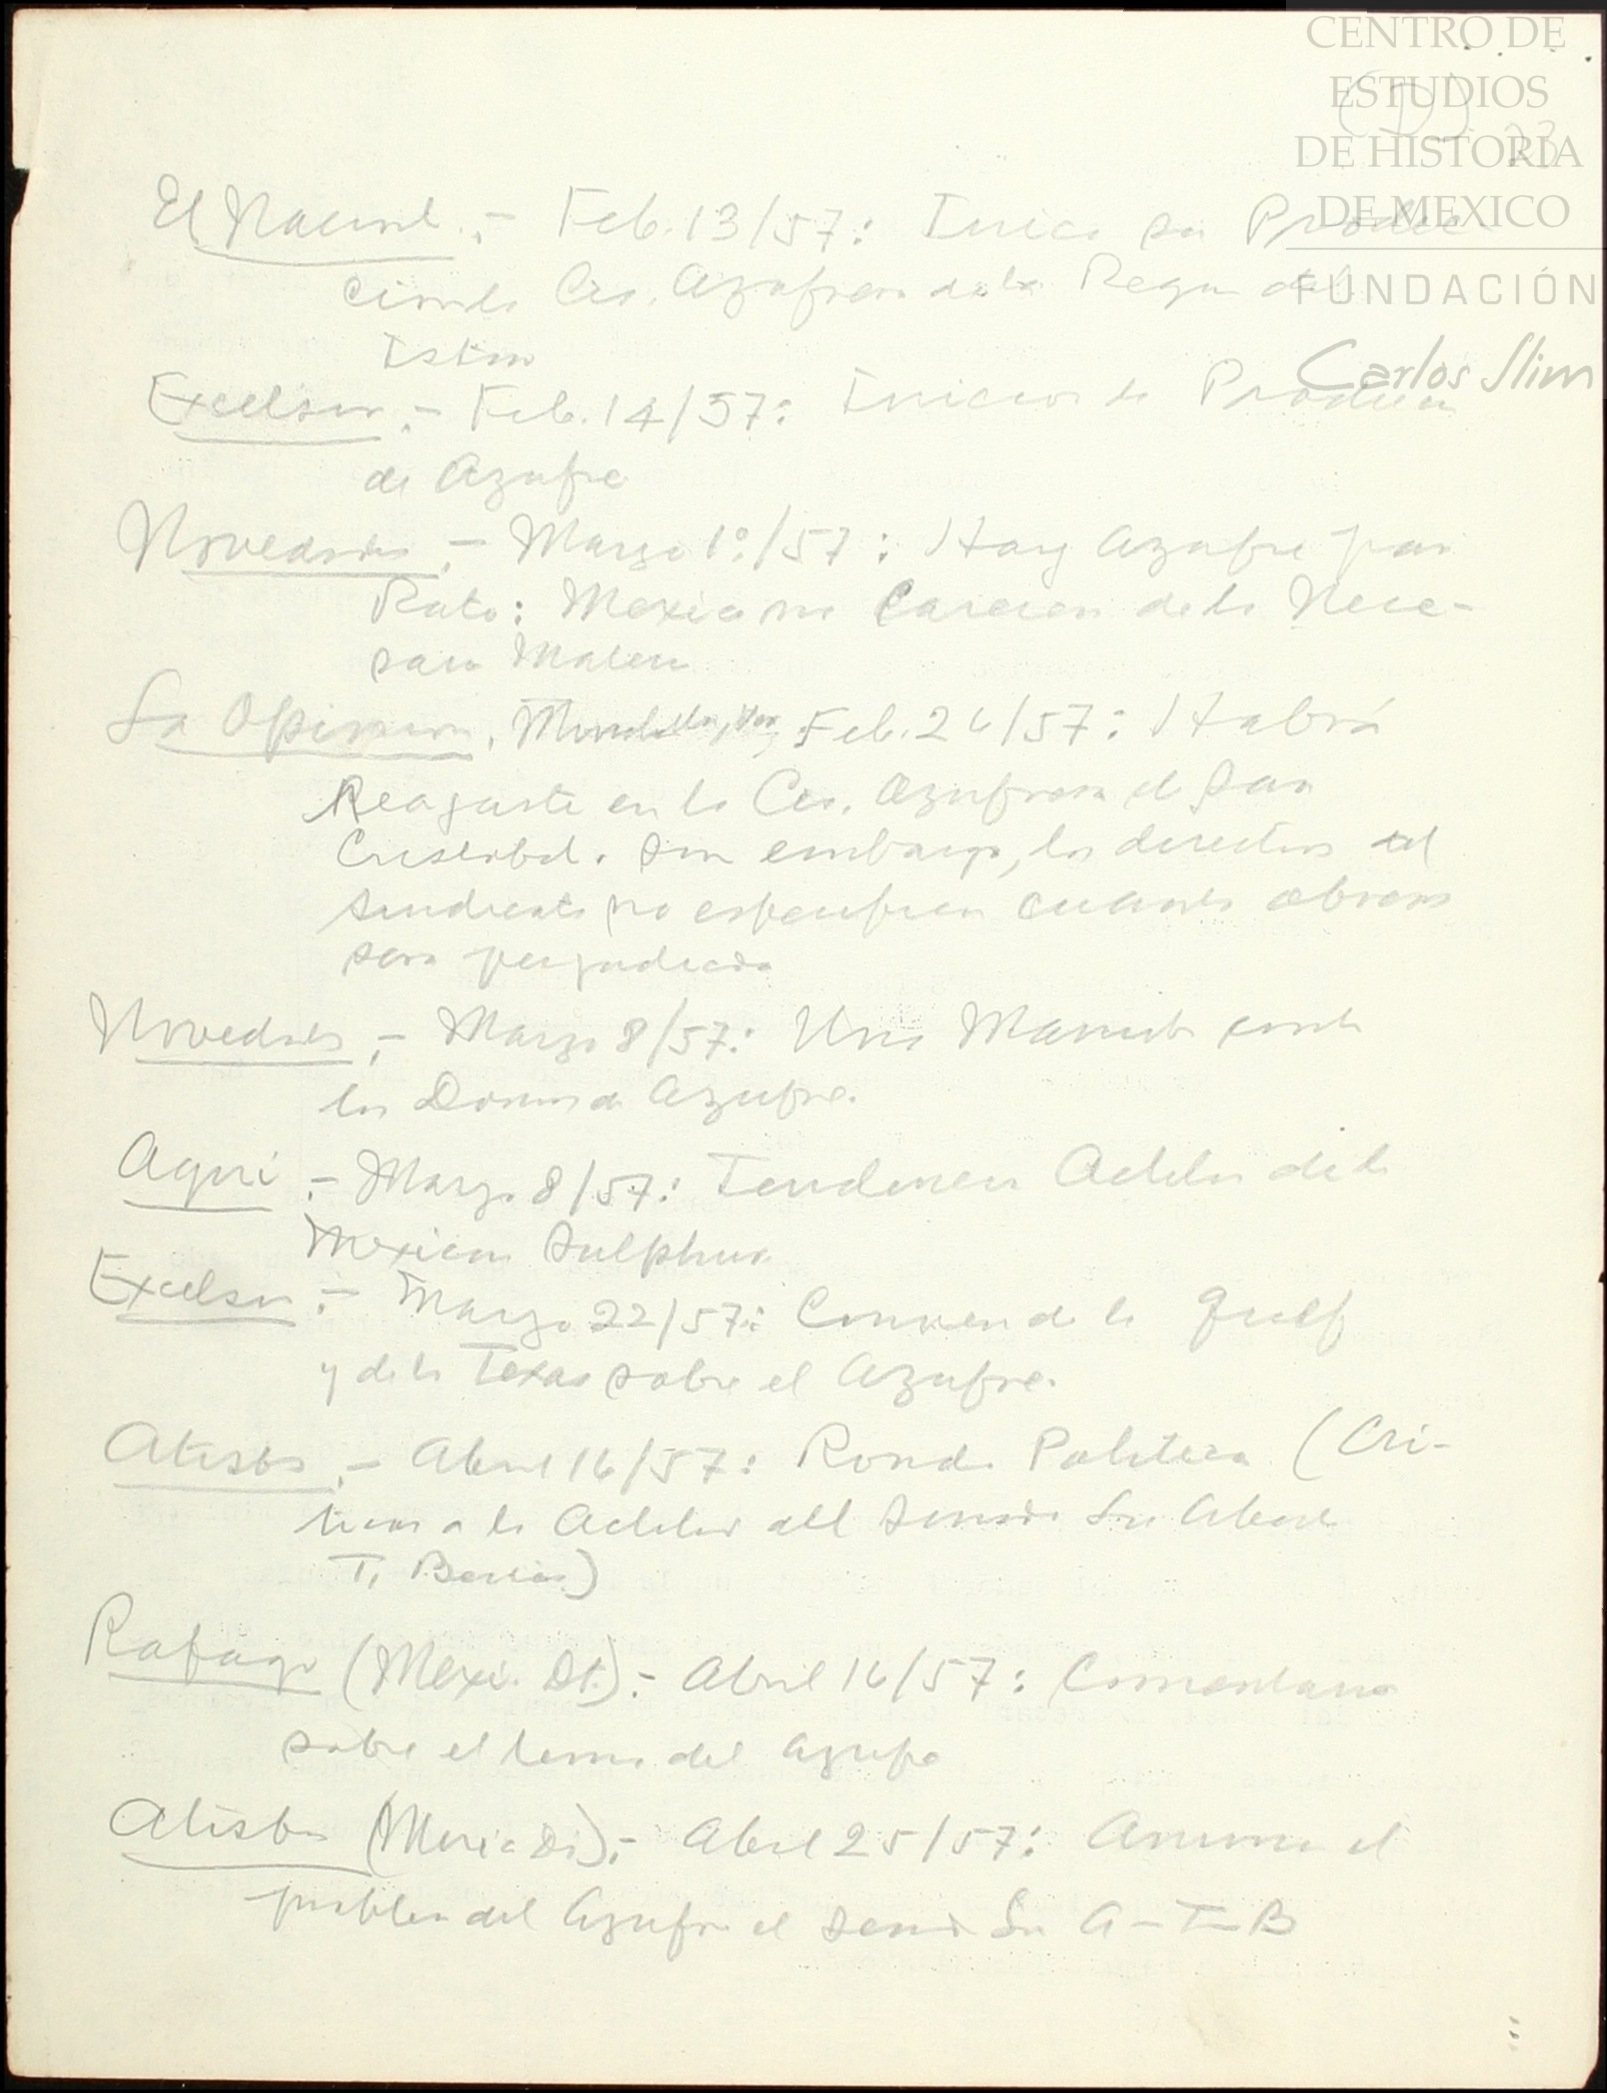 CENTRO DE
ESTUDIOS
DE HISTORIA
DE MEXICO
FUNDACIÓN
Carlos Slim
(D) 23
El Nacional.- Feb. 13/57: Inicia su Produc-
ción la Cia. Azufrera de la Region del
Istmo
Excelsior.- Feb. 14/57: Iniciacion de Produccion
de Azufre
Novedades.- Marzo 1º/57: Hay Azufre para
Rato: Mexico no Carecera de la Nece-
saria Materia
La Opinion, Feb. 26/57: Habrá
Reajuste en la Cia. Azufrera de San
Cristobal. Sin embargo, los directivos del
Sindicato no especifican cuantos obreros
seran perjudicados
Novedades.- Marzo 8/57: Una Maniobra contra
los Domos de Azufre.
Aqui.- Marzo 8/57: Tendenciosa Actitud de la
Mexican Sulphur
Excelsior.- Marzo 22/57: de la Gulf
y de la Texas sobre el Azufre.
Atisbos.- Abril 16/57: Ronda Politica (Cri-
ticas a la Actitud del Senador Lic
T.
Rafaga (Mexico Df.).- Abril 16/57: Comentario
sobre el tema del Azufre
Atisbos (Mexico Df).- Abril 25/57: el
problema del Azufre el Senador Lic A-T-B